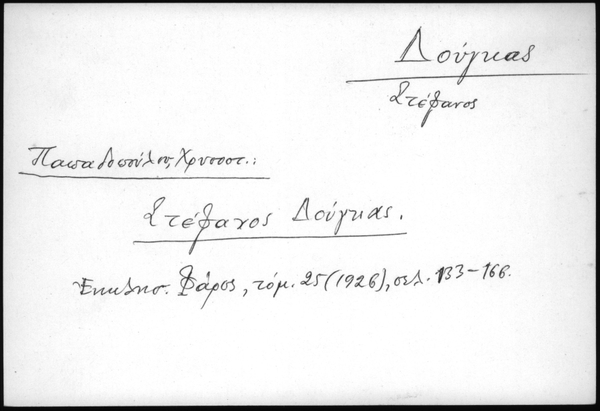 Δούγκας
Στέφανος
Παπαδοπούλου, Χρυσοστ.:
Στέφανος Δούγκας.
Ἐκκλησ. Φάρος, τόμ. 25 (1926), σελ. 133-166.